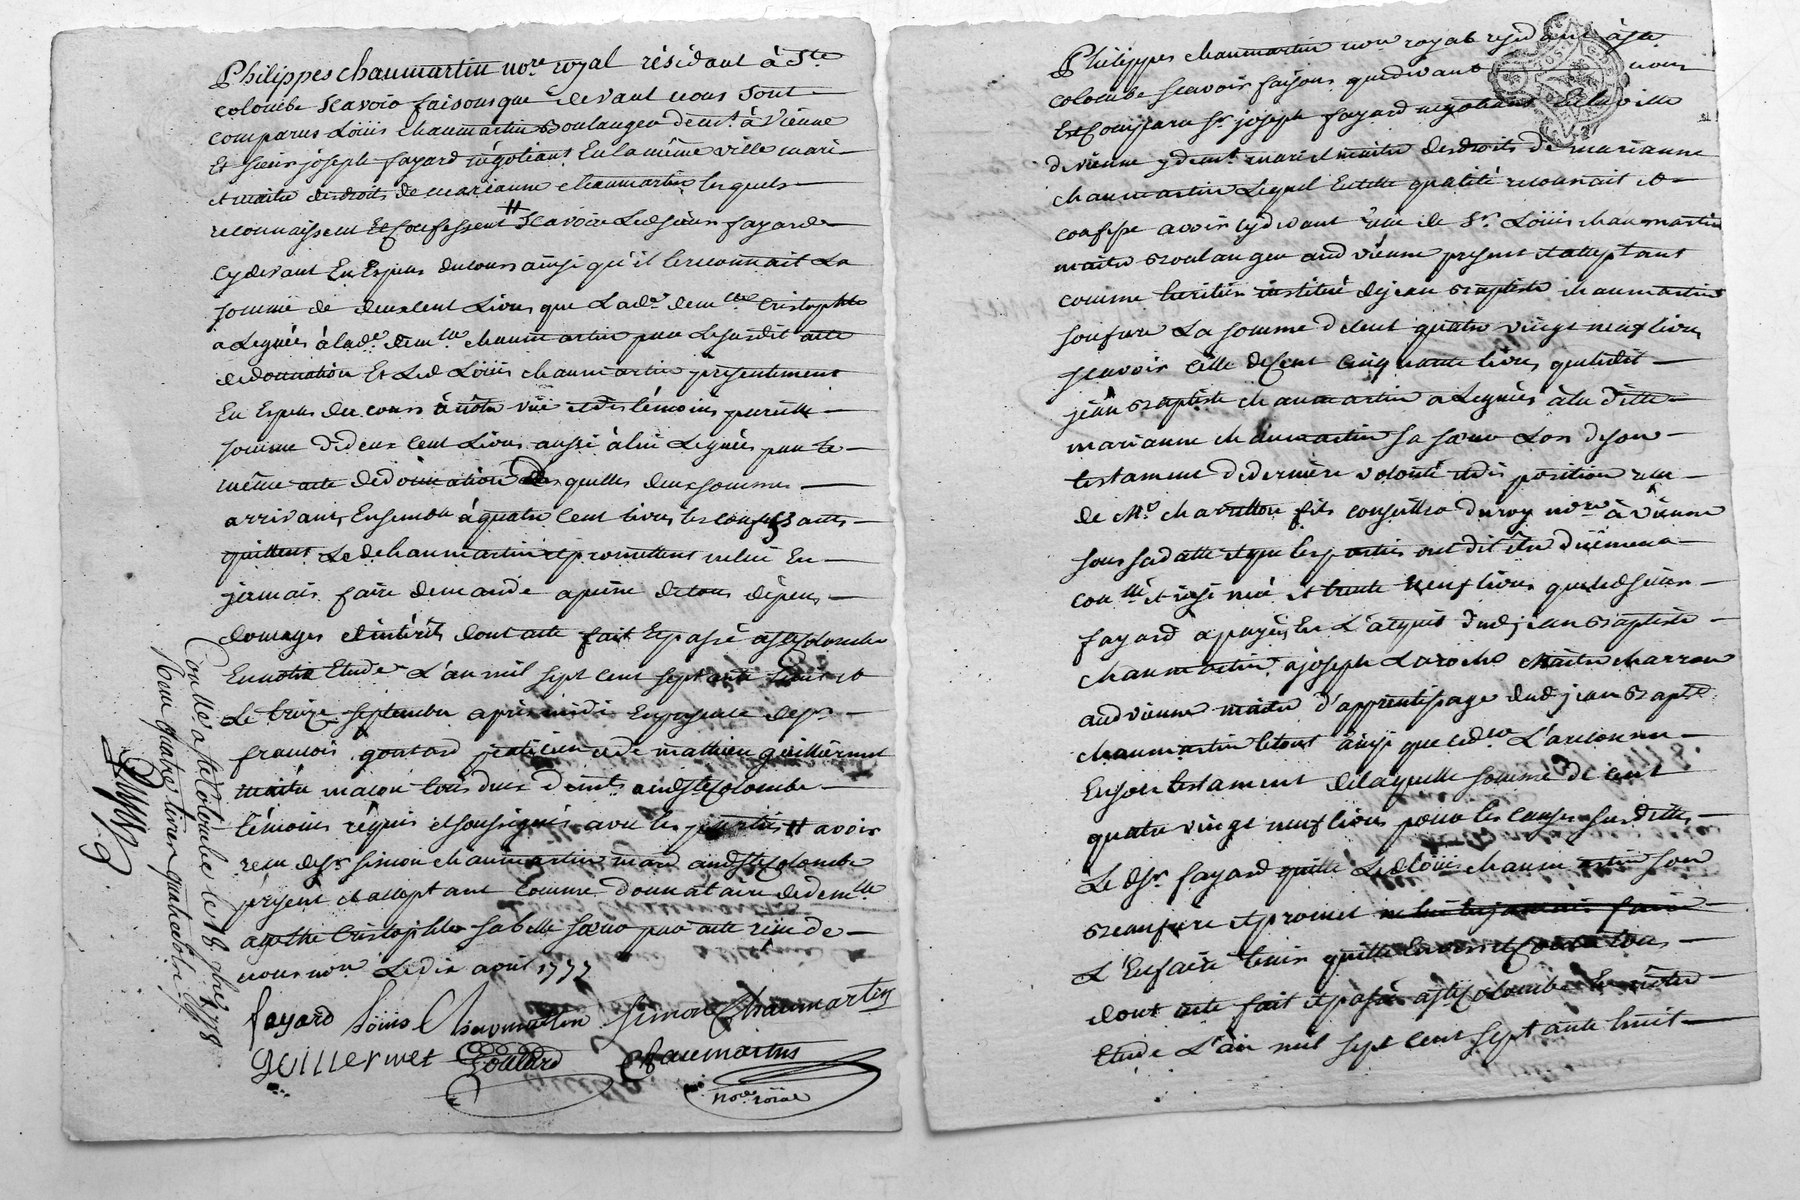 Philippes chaumartin nore royal résidant à Ste
colombe scavoir faisons que devant nous sont
comparus Loüis chaumartin Boulanger demt à Vienne
Et sieur joseph fayard négotiant En la même ville mari
et maitre des droits de marianne chaumartin lesquels
reconnaissent Et Confessent # scavoir Ledsieur fayard
cy devant En Espèces du cours ainsi qu'il le reconnait La
somme de deux cent Livres que Lade demlle Cristophle
a Leguée à lade demlle chaumartin par Le susdit acte
de donnation Et Led Loüis chaumartin présentement
En Espèces du cours à nôtre vüe et des témoins pareille
somme de deux cent Livres aussi à lui Leguée par le
même acte de donnation Desquelles deux sommes
arrivant Ensemble à quatre cent livres les confessants
quittent Led chaumartin et promettent ne lui En
jamais faire demande à peine de tous dépens
domages et intérêts dont acte fait Et passé à Ste Colombe
En notre Etude L'an mil sept cent septante huit et
Le treize septembre après midi En présence de sr
francois goutard praticien et de mathieu guillermet
maitre maçon tous deux demts aud Ste Colombe
témoins réquis et soussignés avec les parties # avoir
reçu de sr Simon chaumartin mard aud Ste Colombe
présent et acceptant comme donnataire de demlle
agathe Cristophle sa belle sœur par acte reçu de
nous nore Le dix avril 1777
fayard Loüis Chaumartin Simon Chaumartin
guillermet Goutard Chaumartin
nore roial
Conllé à Ste Colombe le 18 7bre 1778
Reçu quatre livres quatre sols
Philippes chaumartin nore royal résidant à Ste
colombe scavoir faisons que devant nous
Est Comparu sr joseph fayard négotiant En la ville
de vienne y demt mari et maitre des droits de marianne
chaumartin Lequel En telle qualité reconnait et
confesse avoir cy devant reçu de Sr Loüis chaumartin
maitre Boulanger aud vienne présent et acceptant
comme héritier institué de jean Baptiste chaumartin
son frère La somme de Cent quatre vingt neuf livres
scavoir Celle de Cent Cinquante livres que ledit
jean Baptiste chaumartin a Leguée à la ditte
marianne chaumartin sa sœur Lors de son
testament de dernière volonté et disposition reçu
de Me charreton fils conseiller du roy nore à vienne
sous sa datte et que les parties ont dit être düement
conllé et insinué et trente neuf livres que led sieur
fayard a payées En L'acquit dud jean Baptiste
chaumartin à joseph Laroche maitre charron
aud vienne maitre d'apprentissage dud jean Bapte
chaumartin le tout ainsi que cedr L'a reconnu
En son testament de laquelle somme de cent
quatre vingt neuf livres pour les causes susdittes
Le dsr fayard quitte Led Loüis chaumartin son
Beaufrère et promet ne lui En jamais faire
L'En faire tenir quitte Envers Et Contre tous
dont acte fait et passé à Ste Colombe En nôtre
Etude L'an mil sept cent septante huit